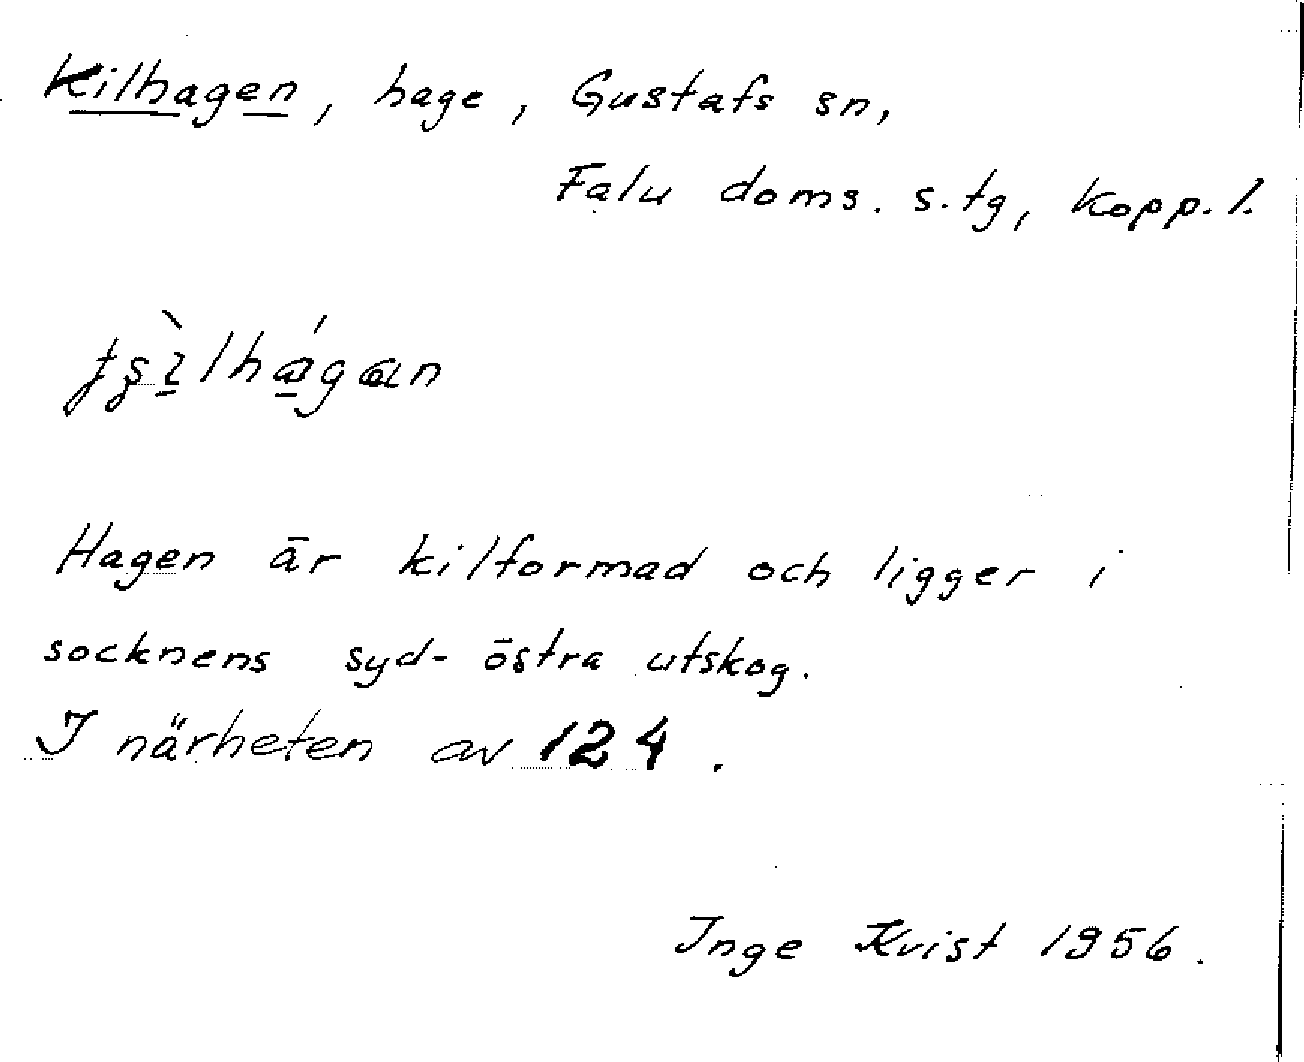 Kilhagen, hage, Gustafs sn,
Falu doms. s. tg, Kopp. l.
Hagen är kilformad och ligger i
socknens syd-östra utskog.
I närheten av 124.
Inge Kvist 1956.